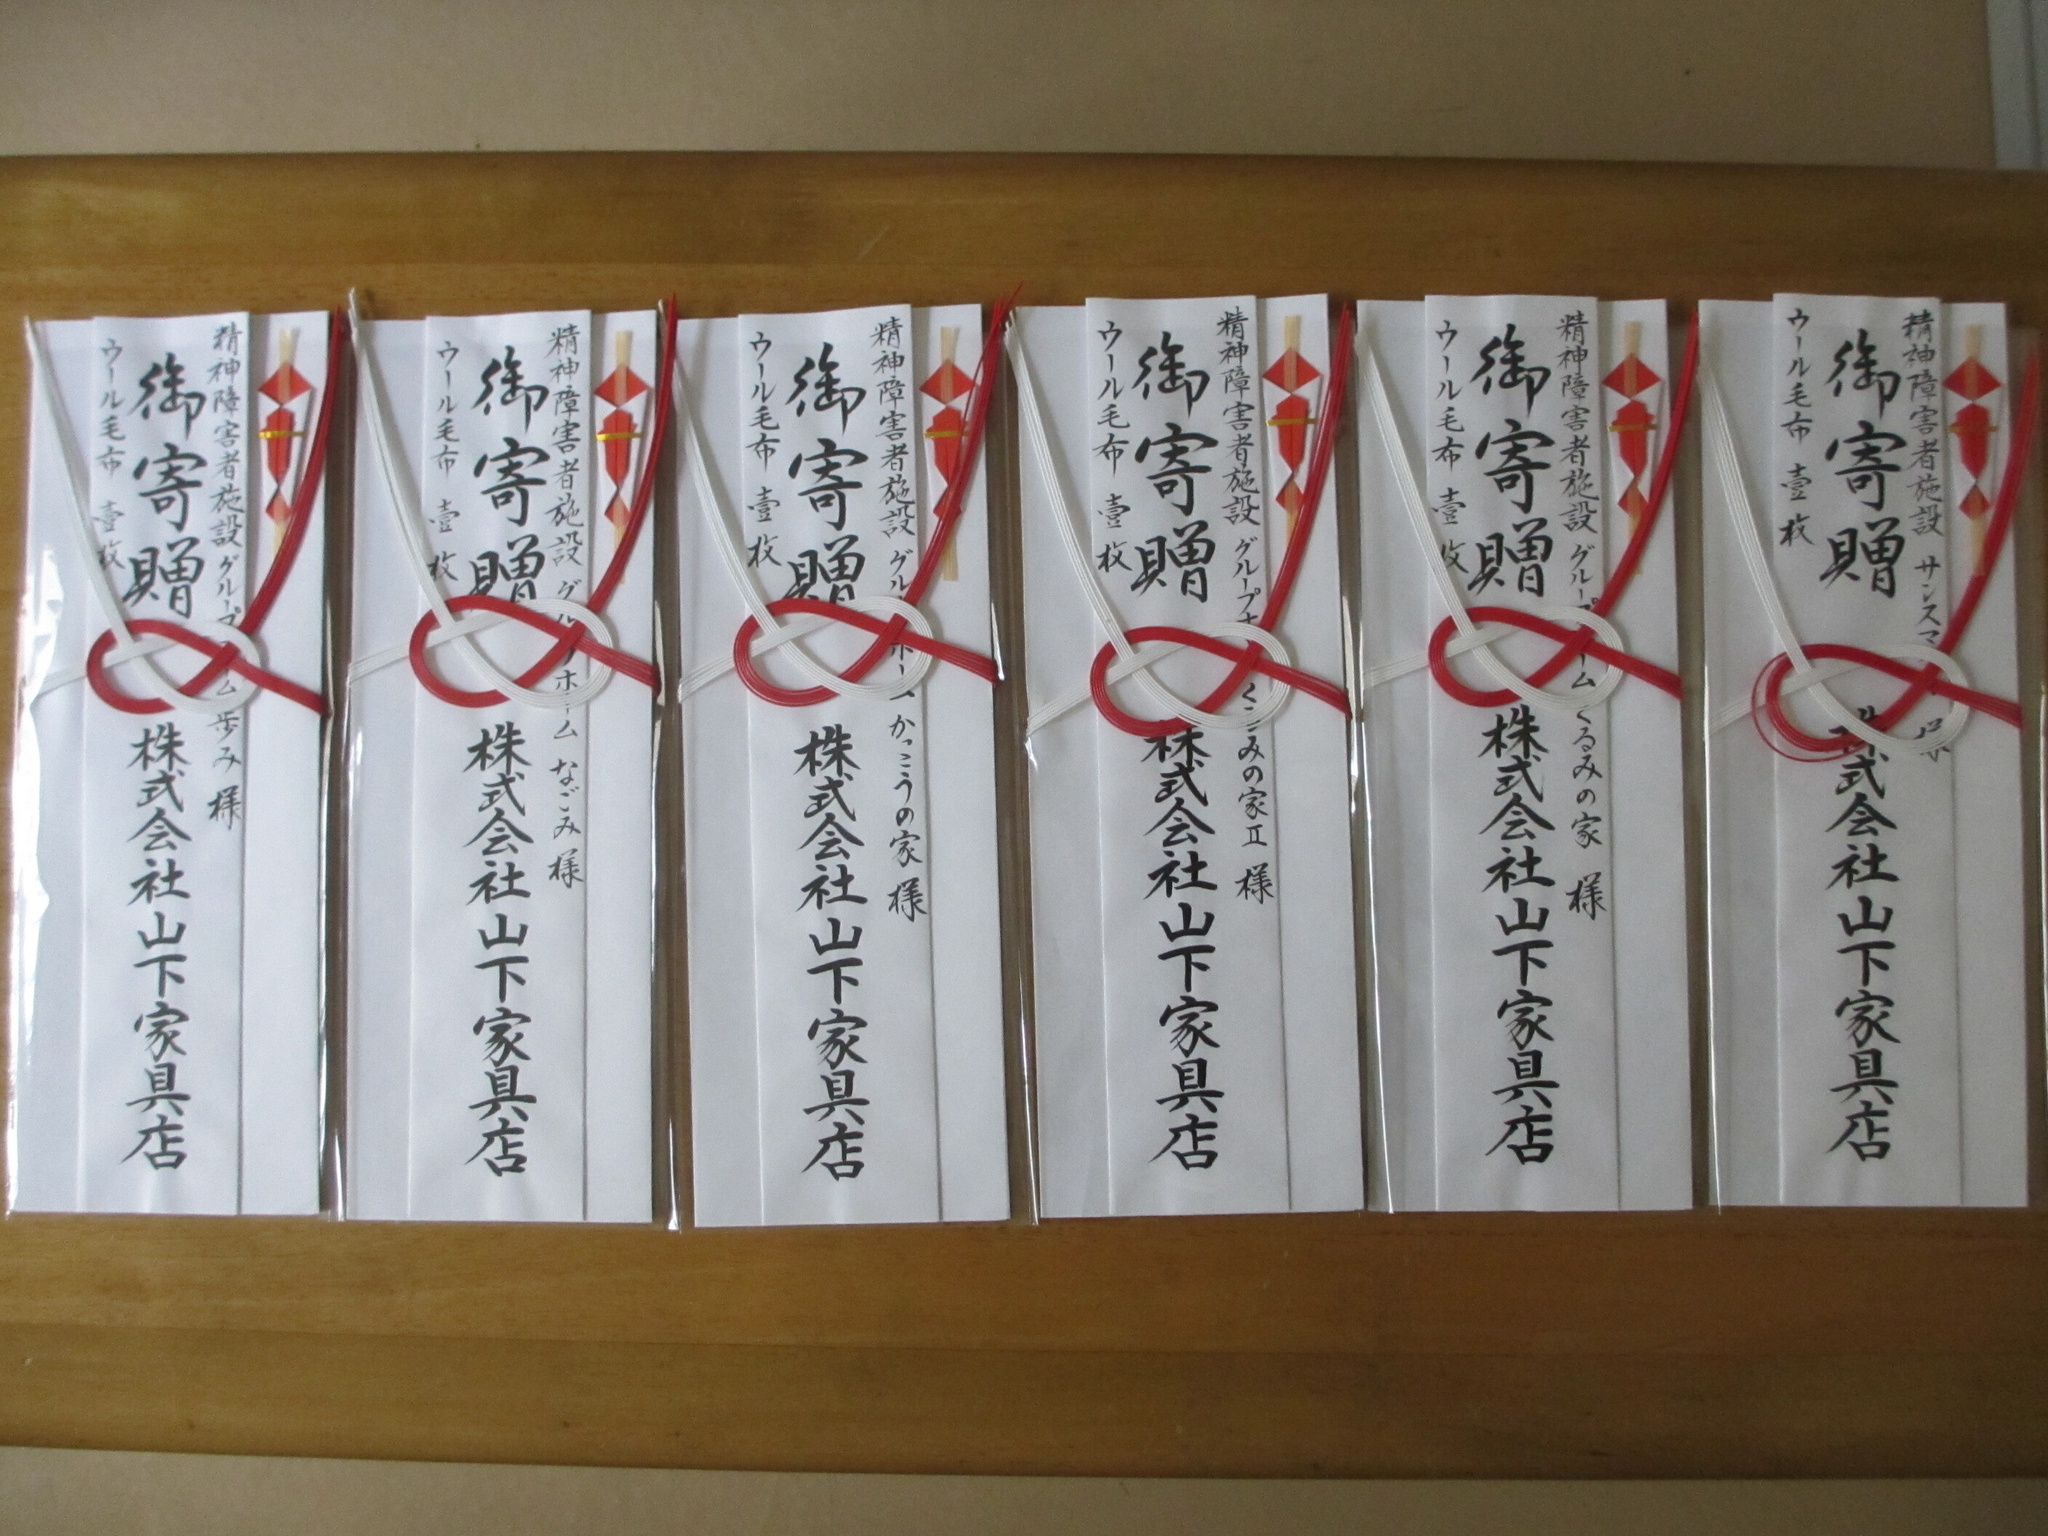 精神障害者施設 サンスマ 様
御寄贈 株式会社山下家具店
ウール毛布 壹枚
精神障害者施設 グループホーム くるみの家 様
御寄贈 株式会社山下家具店
ウール毛布 壹枚
精神障害者施設 グループホーム くるみの家Ⅱ 様
御寄贈 株式会社山下家具店
ウール毛布 壹枚
精神障害者施設 グループホーム かっこうの家 様
御寄贈 株式会社山下家具店
ウール毛布 壹枚
精神障害者施設 グループホーム なごみ 様
御寄贈 株式会社山下家具店
ウール毛布 壹枚
精神障害者施設 グループホーム 歩み 様
御寄贈 株式会社山下家具店
ウール毛布 壹枚